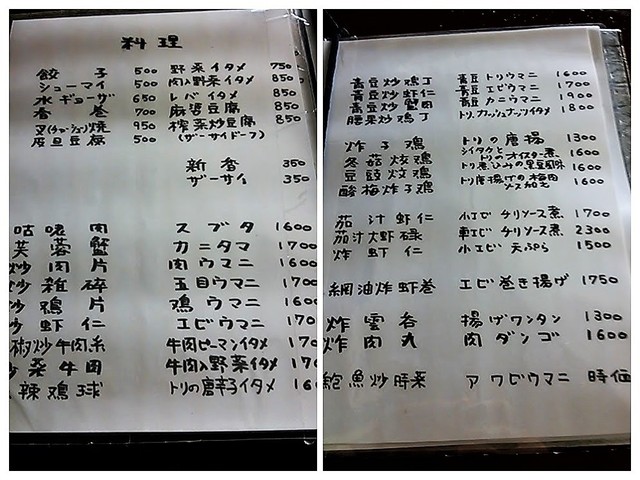 料理
餃子 500 野菜イタメ 750
シューマイ 500 肉入野菜イタメ 850
水ギョーザ 650 レバイタメ 850
春巻 700 麻婆豆腐 850
叉(チャーシュー)焼 950 榨菜炒豆腐 850
皮旦豆腐 500 (ザーサイドーフ)
新香 350
ザーサイ 350
咕嚕肉 スブタ 1600
芙蓉蟹 カニタマ 1700
炒肉片 肉ウマニ 1600
炒雑碎 五目ウマニ 1700
炒鶏片 鶏ウマニ 1600
炒虾仁 エビウマニ 170
椒炒牛肉糸 牛肉ピーマンイタメ 170
炒菜牛肉 牛肉入野菜イタメ 170
辣鶏球 トリの唐辛子イタメ 16
青豆炒鶏丁 青豆トリウマニ 1600
青豆炒虾仁 青豆エビウマニ 1700
青豆炒蟹肉 青豆カニウマニ 1900
腰果炒鶏丁 トリ,カッシュナッツイタメ 1800
炸子鶏 トリの唐揚 1300
冬菇炆鶏 シイタケとトリのオイスター煮 1600
豆豉炆鶏 トリ煮込みの黒豆風味 1600
酸梅炸子鶏 トリ唐揚げの梅肉ソース加え 1600
茄汁虾仁 小エビチリソース煮 1700
茄汁大虾碌 車エビチリソース煮 2300
炸虾仁 小エビ天ぷら 1500
網油炸虾巻 エビ巻き揚げ 1750
炸雲呑 揚げワンタン 1300
炸肉丸 肉ダンゴ 1600
鮑魚炒時菜 アワビウマニ 時価